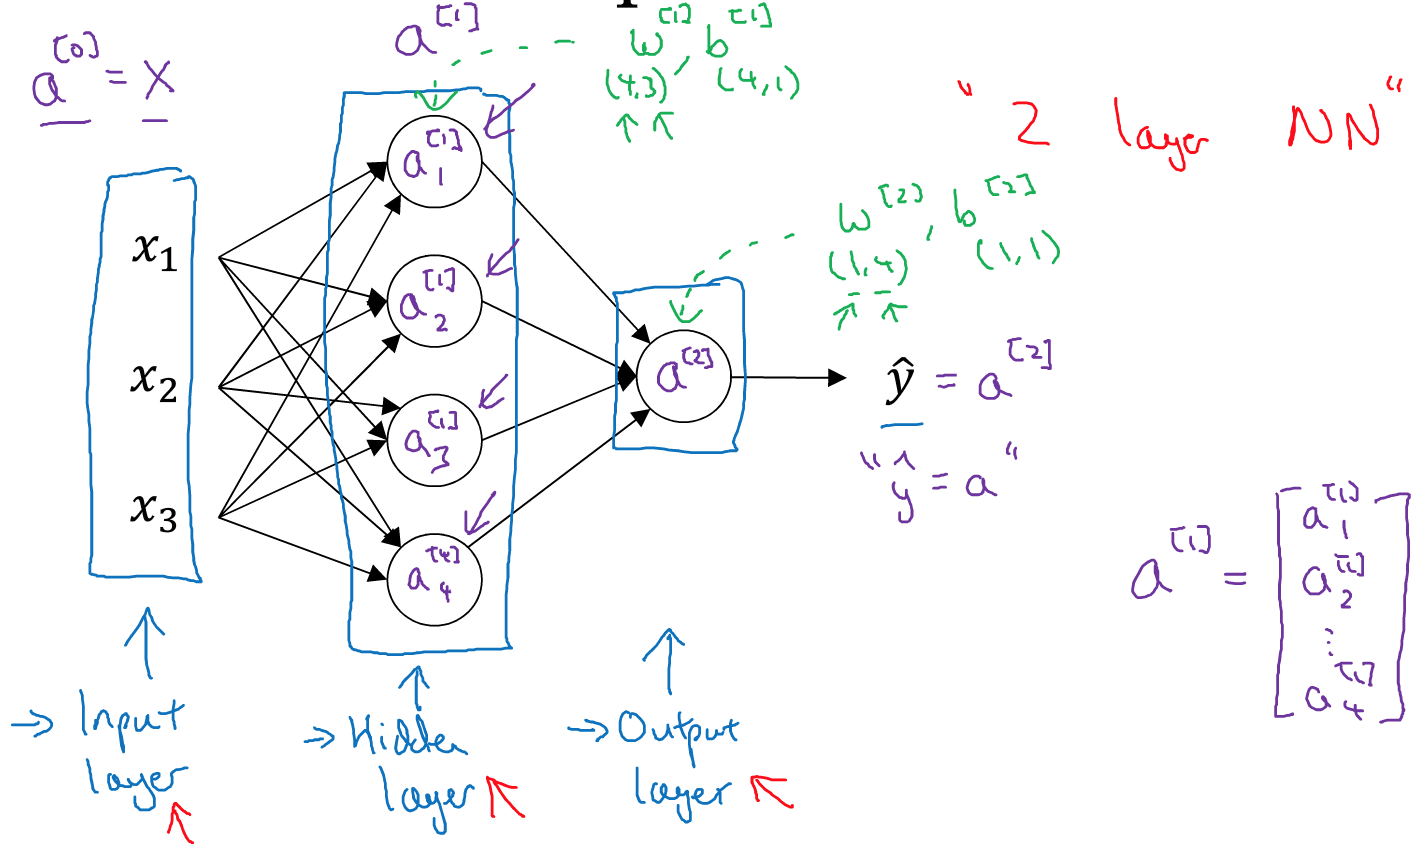 a^[0] = X
a^[1]
w^[1], b^[1]
(4,3) (4,1)
" 2 layer NN "
x₁
x₂
x₃
a₁^[1]
a₂^[1]
a₃^[1]
a₄^[4]
w^[2], b^[2]
(1,4) (1,1)
a^[2]
ŷ = a^[2]
" ŷ = a "
a^[1] = [ a₁^[1]
a₂^[1]
⋮
a₄^[1] ]
→ Input
layer
→ Hidden
layer
→ Output
layer